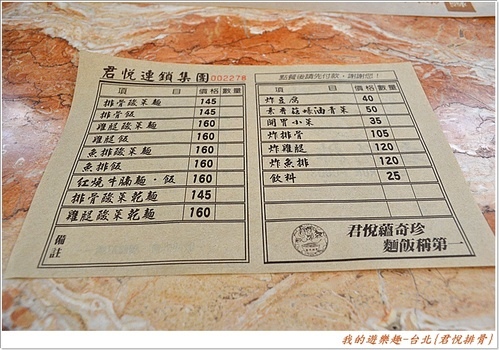 君悅連鎖集團 002278
項 目 價格 數量
排骨酸菜麵 145
排骨飯 145
雞腿酸菜麵 160
雞腿飯 160
魚排酸菜麵 160
魚排飯 160
紅燒牛腩麵·飯 160
排骨酸菜乾麵 145
雞腿酸菜乾麵 160
備註
點餐後請先付款,謝謝您!
項 目 價格 數量
炸豆腐 40
素香菇蠔油青菜 50
開胃小菜 35
炸排骨 105
炸雞腿 120
炸魚排 120
飲料 25
君悅蘊奇珍
麵飯稱第一
我的遊樂趣-台北[君悅排骨]